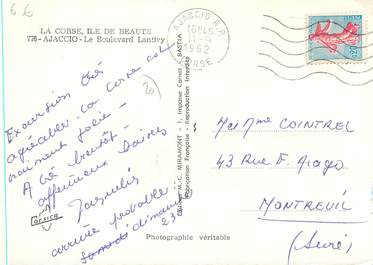 6 €
LA CORSE, ILE DE BEAUTE
778 - AJACCIO - Le Boulevard Lantivy
AJACCIO R.P.
16H45
11-4
1962
CORSE
Excursion très
agréable. La Corse est
vraiment jolie -
A très bientôt -
affectueux baisers
Jacqueline
arrivée probable
samedi dimanche
23
20
Editions M.-C. MIRAMONT - 1, Impasse Carnot - BASTIA
Fabrication Française - Reproduction Interdite
Mr Mme COINTREL
43 Rue F. Arago
MONTREUIL
(Seine)
Photographie véritable